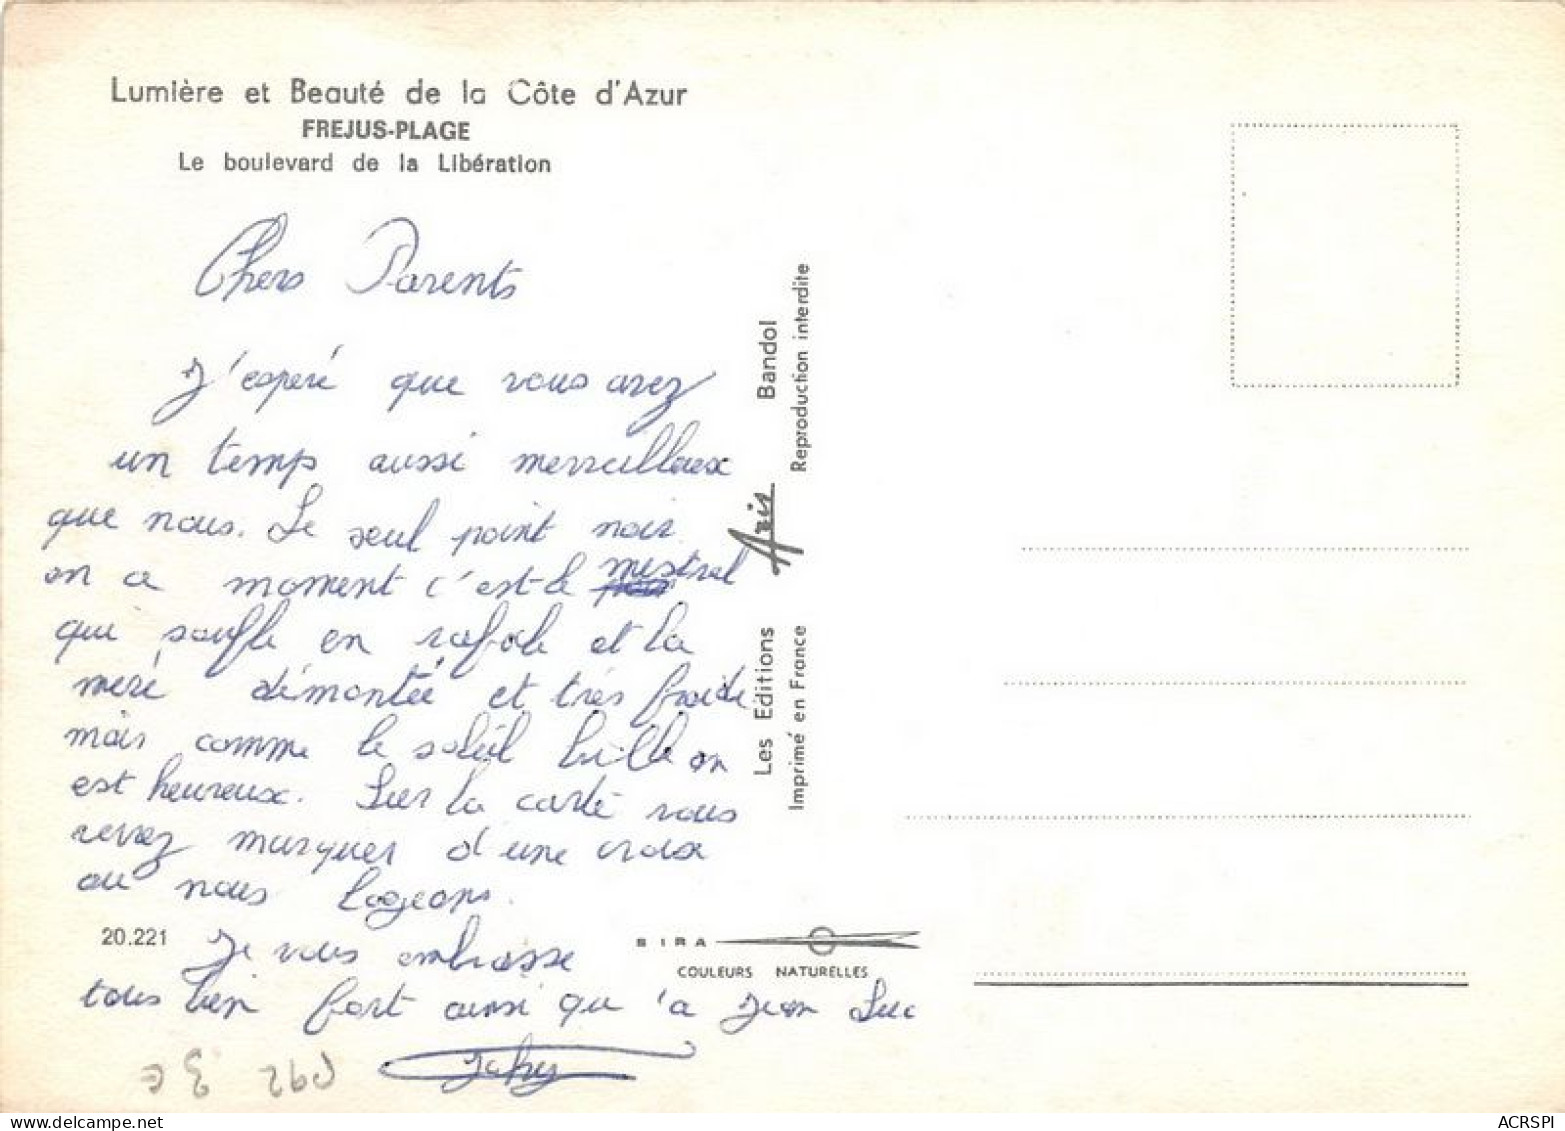 Lumière et Beauté de la Côte d'Azur
FREJUS-PLAGE
Le boulevard de la Libération
Chers Parents
J'esperé que vous avez
un temps aussi merveilleux
que nous. Le seul point noir
en ce moment c'est le mistral
qui soufle en rafale et la
meré démontée et très froide
mais comme le soleil brille on
est heureux. Sur la carte vous
verrez marquer d'une croix
ou nous logeons.
Je vous embrasse
tous bien fort ainsi qu'a Jean Luc
20.221
Les Editions Aris Bandol
Imprimé en France Reproduction interdite
SIRA
COULEURS NATURELLES
P92 3 €
ACRSPI